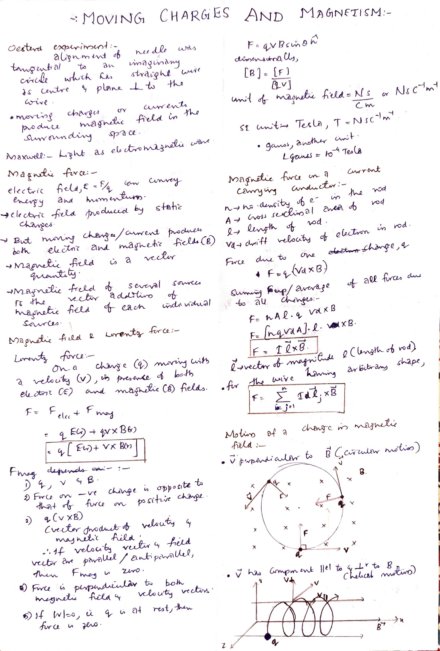 -: MOVING CHARGES AND MAGNETISM:-
Oersted experiment:-
alignment of needle was
tangential to an imaginary
circle which has straight wire
as centre & plane ⊥ to the
wire.
• moving charges or currents
produce magnetic field in the
surrounding space.
Maxwell:- Light as electromagnetic wave
Magnetic force:-
electric field, E = F/q can convey
energy and momentum.
→ electric field produced by static
charges
→ But moving charges/current produces
both electric and magnetic fields (B)
→ Magnetic field is a vector
quantity.
→ Magnetic field of several sources
is the vector addition of
magnetic field of each individual
sources.
Magnetic field & Lorentz force:-
Lorentz force:-
On a charge (q) moving with
a velocity (v), in presence of both
electric (E) and magnetic (B) fields.
F = F elec + F mag
= q E(r) + qv × B(r)
= q [E(r) + v × B(r)]
Fmag depends on -:-
1) q, v & B.
2) Force on -ve charge is opposite to
that of force on positive charge
3) q (v × B)
(vector product of velocity &
magnetic field)
∴ If velocity vector & field
vector are parallel / antiparallel,
then Fmag is zero.
Force is perpendicular to both
magnetic field & velocity vectors.
5) If |v|=0, ie q is at rest, then
force is zero.
F = qVB sin θ n̂
dimensionally,
[B] = [F]/[qV]
unit of magnetic field = Ns/Cm or NsC⁻¹m⁻¹
SI unit = Tesla, T = NsC⁻¹m⁻¹
• gauss, another unit.
1 gauss = 10⁻⁴ Tesla
Magnetic force in a current
carrying conductor:-
n → no. density of e⁻ in the rod
A → cross sectional area of rod
l → length of rod.
Vd → drift velocity of electron in rod.
Force due to one charge, q
F = q (Vd × B)
Summing up/average of all forces due
to all charges:-
F = nAl · q Vd × B
F = [nqVdA] · l · × B.
F = I l × B
l → vector of magnitude l (length of rod)
• for the wire having arbitrary shape,
F = Σ I dl j × B
Motion of a charge in magnetic
field:-
• V perpendicular to B (circular motion)
B
q
F
V
• V has component ||el to & ⊥r to B
(helical motion)
V⊥
V||
B
x
z
q